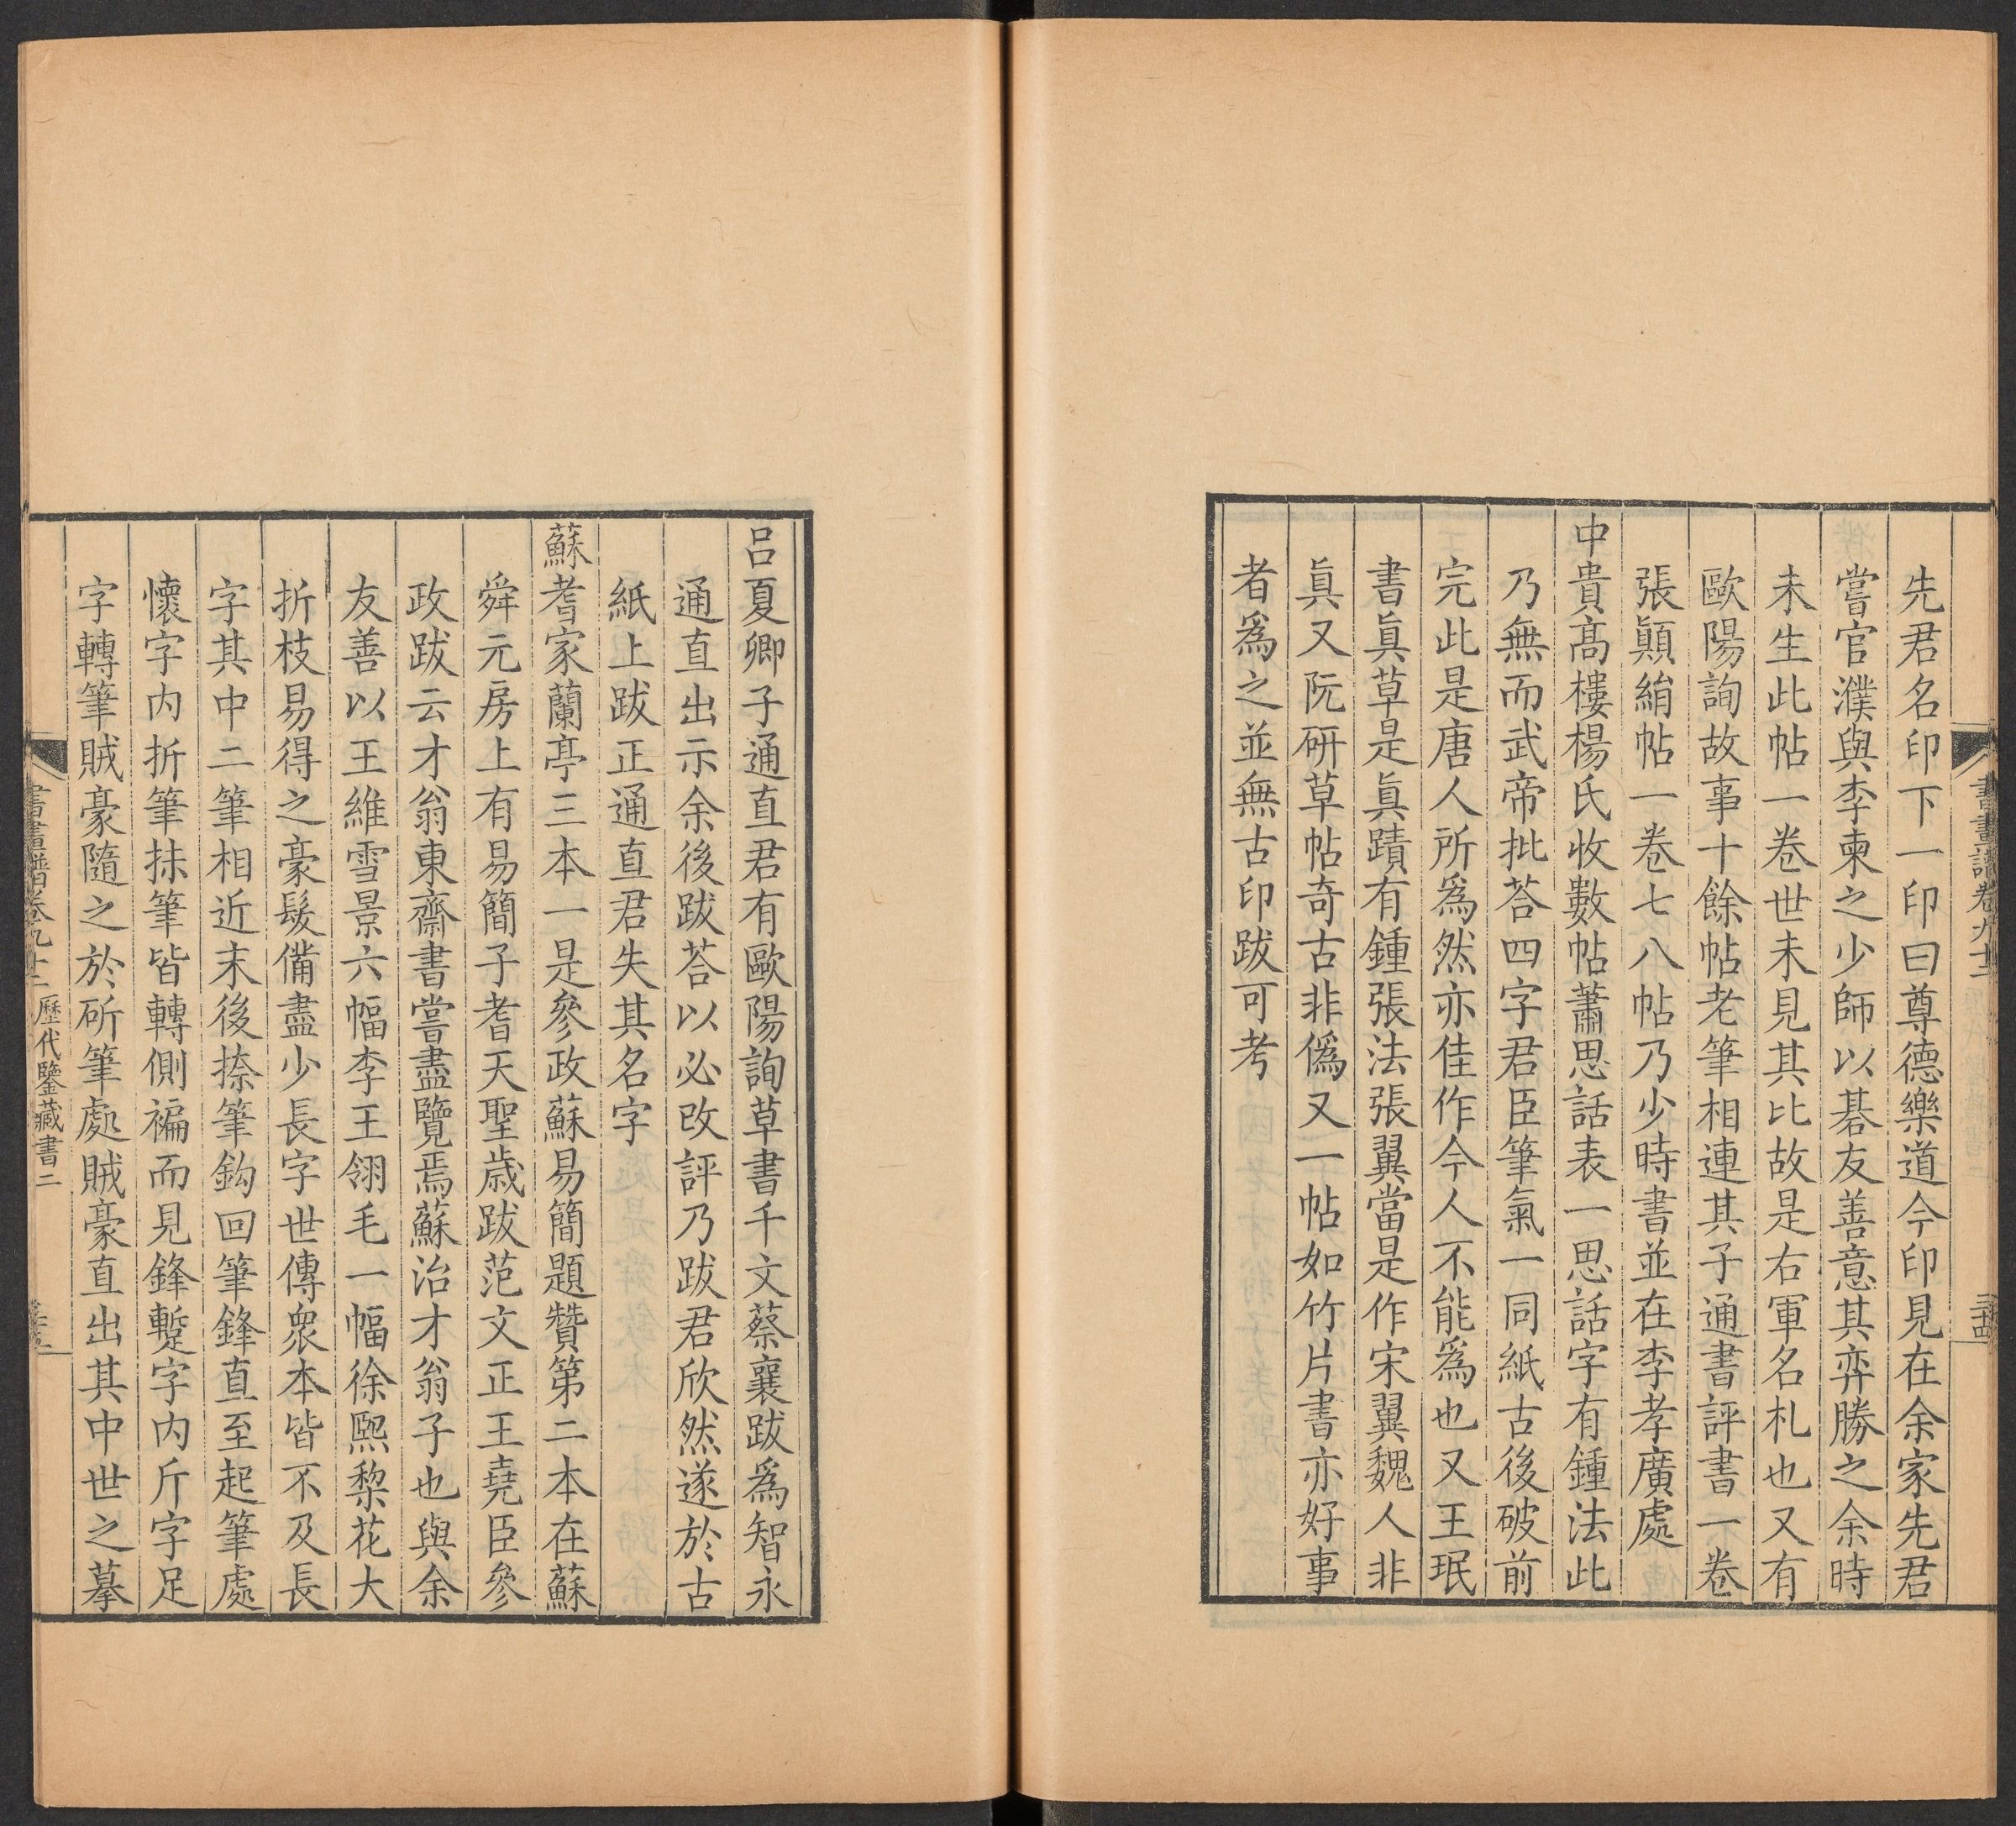 書畫譜卷九十二
三十四
先君名印下一印曰尊德樂道今印見在余家先君
嘗官濮與李柬之少師以碁友善意其弈勝之余時
未生此帖一卷世未見其比故是右軍名札也又有
歐陽詢故事十餘帖老筆相連其子通書評書一卷
張顛絹帖一卷七八帖乃少時書並在李孝廣處
中貴高樓楊氏收數帖蕭思話表一思話字有鍾法此
乃無而武帝批荅四字君臣筆氣一同紙古後破前
完此是唐人所爲然亦佳作今人不能爲也又王珉
書眞草是眞蹟有鍾張法張翼當是作宋翼魏人非
眞又阮研草帖奇古非僞又一帖如竹片書亦好事
者爲之並無古印跋可考
呂夏卿子通直君有歐陽詢草書千文蔡襄跋爲智永
通直出示余後跋荅以必改評乃跋君欣然遂於古
紙上跋正通直君失其名字
蘇耆家蘭亭三本一是參政蘇易簡題贊第二本在蘇
舜元房上有易簡子耆天聖歲跋范文正王堯臣參
政跋云才翁東齋書嘗盡覽焉蘇治才翁子也與余
友善以王維雪景六幅李王翎毛一幅徐熙棃花大
折枝易得之豪髮備盡少長字世傳衆本皆不及長
字其中二筆相近末後捺筆鈎回筆鋒直至起筆處
懷字内折筆抹筆皆轉側褊而見鋒蹔字内斤字足
字轉筆賊豪隨之於斫筆處賊豪直出其中世之摹
書畫譜卷九十二 歷代鑒藏書二
三十五